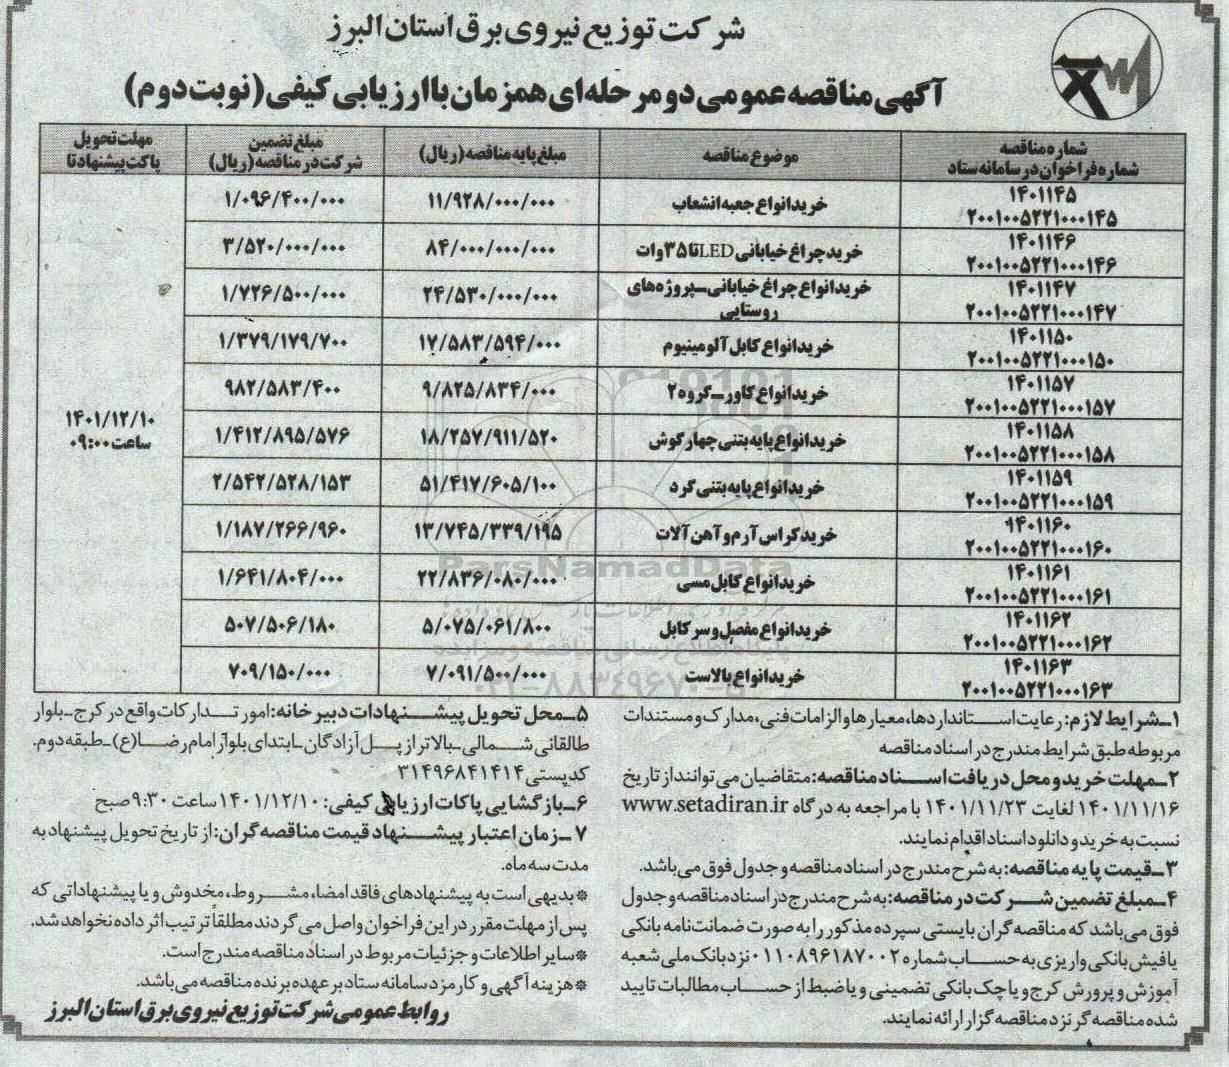 شرکت توزیع نیروی برق استان البرز
آگهی مناقصه عمومی دو مرحله‌ای همزمان با ارزیابی کیفی (نوبت دوم)
شماره مناقصه شماره فراخوان در سامانه ستاد | موضوع مناقصه | مبلغ پایه مناقصه (ریال) | مبلغ تضمین شرکت در مناقصه (ریال) | مهلت تحویل پاکت پیشنهاد تا
۱۴۰۱۱۴۵ ۲۰۰۱۰۰۵۲۲۱۰۰۰۱۴۵ | خرید انواع جعبه انشعاب | ۱۱/۹۲۸/۰۰۰/۰۰۰ | ۱/۰۹۶/۴۰۰/۰۰۰ | ۱۴۰۱/۱۲/۱۰ ساعت ۰۹:۰۰
۱۴۰۱۱۴۶ ۲۰۰۱۰۰۵۲۲۱۰۰۰۱۴۶ | خرید چراغ خیابانی LED تا ۳۵ وات | ۸۴/۰۰۰/۰۰۰/۰۰۰ | ۳/۵۲۰/۰۰۰/۰۰۰
۱۴۰۱۱۴۷ ۲۰۰۱۰۰۵۲۲۱۰۰۰۱۴۷ | خرید انواع چراغ خیابانی_پروژه‌های روستایی | ۲۴/۵۳۰/۰۰۰/۰۰۰ | ۱/۷۲۶/۵۰۰/۰۰۰
۱۴۰۱۱۵۰ ۲۰۰۱۰۰۵۲۲۱۰۰۰۱۵۰ | خرید انواع کابل آلومینیوم | ۱۷/۵۸۳/۵۹۴/۰۰۰ | ۱/۳۷۹/۱۷۹/۷۰۰
۱۴۰۱۱۵۷ ۲۰۰۱۰۰۵۲۲۱۰۰۰۱۵۷ | خرید انواع کاور_گروه ۲ | ۹/۸۲۵/۸۳۴/۰۰۰ | ۹۸۲/۵۸۳/۴۰۰
۱۴۰۱۱۵۸ ۲۰۰۱۰۰۵۲۲۱۰۰۰۱۵۸ | خرید انواع پایه بتنی چهارگوش | ۱۸/۲۵۷/۹۱۱/۵۲۰ | ۱/۴۱۲/۸۹۵/۵۷۶
۱۴۰۱۱۵۹ ۲۰۰۱۰۰۵۲۲۱۰۰۰۱۵۹ | خرید انواع پایه بتنی گرد | ۵۱/۴۱۷/۶۰۵/۱۰۰ | ۲/۵۴۲/۵۲۸/۱۵۳
۱۴۰۱۱۶۰ ۲۰۰۱۰۰۵۲۲۱۰۰۰۱۶۰ | خرید کراس آرم و آهن آلات | ۱۳/۷۴۵/۳۳۹/۱۹۵ | ۱/۱۸۷/۲۶۶/۹۶۰
۱۴۰۱۱۶۱ ۲۰۰۱۰۰۵۲۲۱۰۰۰۱۶۱ | خرید انواع کابل مسی | ۲۲/۸۳۶/۰۸۰/۰۰۰ | ۱/۶۴۱/۸۰۴/۰۰۰
۱۴۰۱۱۶۲ ۲۰۰۱۰۰۵۲۲۱۰۰۰۱۶۲ | خرید انواع مفصل و سر کابل | ۵/۰۷۵/۰۶۱/۸۰۰ | ۵۰۷/۵۰۶/۱۸۰
۱۴۰۱۱۶۳ ۲۰۰۱۰۰۵۲۲۱۰۰۰۱۶۳ | خرید انواع بالاست | ۷/۰۹۱/۵۰۰/۰۰۰ | ۷۰۹/۱۵۰/۰۰۰
ParsNamadData
۰۲۱-۸۸۳۴۹۶۷۰-۵
۱_شرایط لازم: رعایت استانداردها، معیارها و الزامات فنی، مدارک و مستندات
مربوطه طبق شرایط مندرج در اسناد مناقصه
۲_مهلت خرید و محل دریافت اسناد مناقصه: متقاضیان می توانند از تاریخ
۱۴۰۱/۱۱/۱۶ لغایت ۱۴۰۱/۱۱/۲۳ با مراجعه به درگاه www.setadiran.ir
نسبت به خرید و دانلود اسناد اقدام نمایند.
۳_قیمت پایه مناقصه: به شرح مندرج در اسناد مناقصه و جدول فوق می باشد.
۴_مبلغ تضمین شرکت در مناقصه: به شرح مندرج در اسناد مناقصه و جدول
فوق می باشد که مناقصه گران بایستی سپرده مذکور را به صورت ضمانت نامه بانکی
یا فیش بانکی واریزی به حساب شماره ۰۱۱۰۸۹۶۱۸۷۰۰۲ نزد بانک ملی شعبه
آموزش و پرورش کرج و یا چک بانکی تضمینی و یا ضبط از حساب مطالبات تایید
شده مناقصه گر نزد مناقصه گزار ارائه نمایند.
۵_محل تحویل پیشنهادات دبیرخانه: امور تدارکات واقع در کرج_بلوار
طالقانی شمالی_بالاتر از پل آزادگان_ابتدای بلوار امام رضا(ع)_طبقه دوم.
کدپستی ۳۱۴۹۶۸۴۱۴۱۴
۶_بازگشایی پاکات ارزیابی کیفی: ۱۴۰۱/۱۲/۱۰ ساعت ۹:۳۰ صبح
۷_زمان اعتبار پیشنهاد قیمت مناقصه گران: از تاریخ تحویل پیشنهاد به
مدت سه ماه.
*بدیهی است به پیشنهادهای فاقد امضا، مشروط، مخدوش و یا پیشنهاداتی که
پس از مهلت مقرر در این فراخوان واصل می گردند مطلقاً ترتیب اثر داده نخواهد شد.
*سایر اطلاعات و جزئیات مربوط در اسناد مناقصه مندرج است.
*هزینه آگهی و کارمزد سامانه ستاد بر عهده برنده مناقصه می باشد.
روابط عمومی شرکت توزیع نیروی برق استان البرز